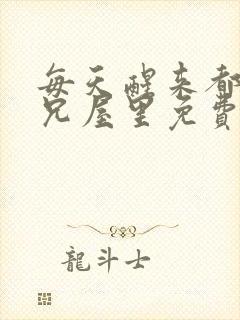 每天醒来都
兄屋里免費
龍斗士